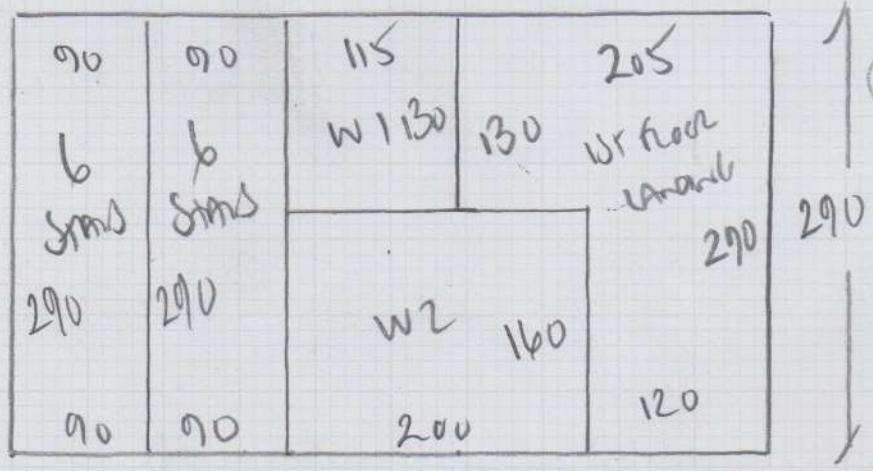 90
6
STAIRS
290
90
90
6
STAIRS
290
90
115
W1 130
205
130
1ST FLOOR
LANDING
290
W2
160
200
120
290